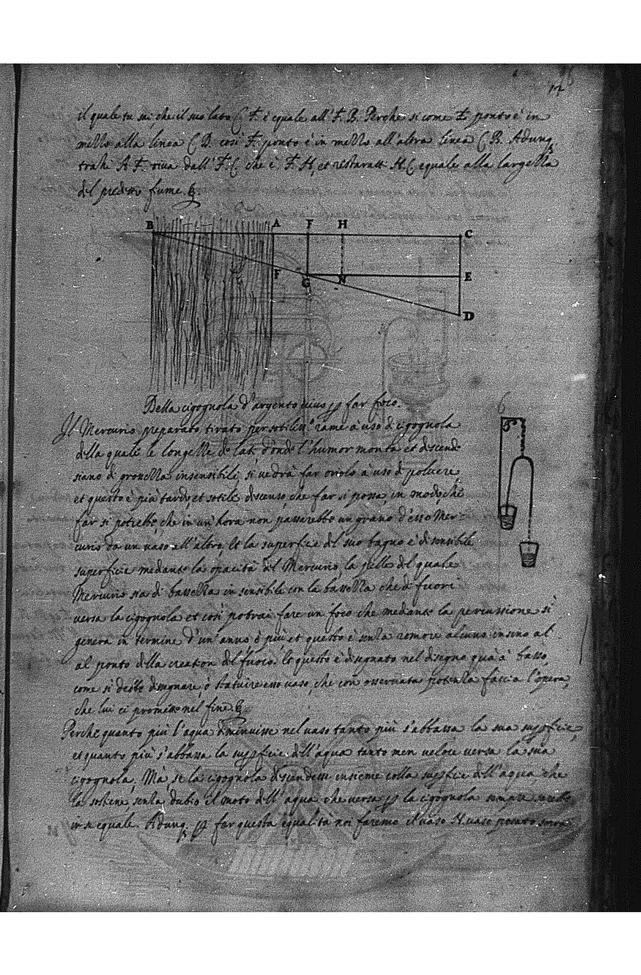 il quale tu sai, che il suo lato C F. è equale all' F. B. Perche si come E ponto è in
mezzo alla linea C D. così F. ponto è in mezzo all' altra linea C B. Adunq
trahi A F. riva dall' F. C che è F. H, et restaratti H. C equale alla largezza
del predetto fiume.
B A F H C
F G N E
D
Della cigognola d'argento vivo p far foco.
Il Mercurio preparato tirato per sotiliss.º rame a uso di cigognola
della quale le longezze de lati d'onde l'humor monta et discende
siano di grossezza insensibile, si vedrà far oriolo a uso di polvere
et questo è più tardo, et sotile discenso, che far si possa in modo che
far si potrebbe, che in un' hora non passarebbe un grano d'esso Mer-
curio da un vaso all' altro. Et la superficie del suo bagno è insensibile
superficie mediante la opacità del Mercurio la pelle del quale
Mercurio sia di bassezza insensibile con la bassezza che di fuori
versa la cigognola et così potrai fare un foco che mediante la percussione si
genera in termine d'un' anno è più et questo è senza romore alcuno insino al
al ponto della creation del fuoco. Et questo è disegnato nel disegno quà a' basso
come si debbe disegnare, ò statuire esso vaso, che con osservata potenza faccia l'opera,
che lui ci promise nel fine.
Perche quanto più l'aqua diminuisse nel vaso tanto più s'abbassa la sua superficie,
et quanto più s'abbassa la superficie dell' aqua tanto men veloce versa la sua
cigognola. Ma se la cigognola discendesse insieme colla superficie dell' aqua che
la sostiene senza dubio il moto dell' aqua che versa p la cigognola sempre sarebbe
in se equale. Adunq p far questa equalità noi faremo il vaso N. vase posato sovra